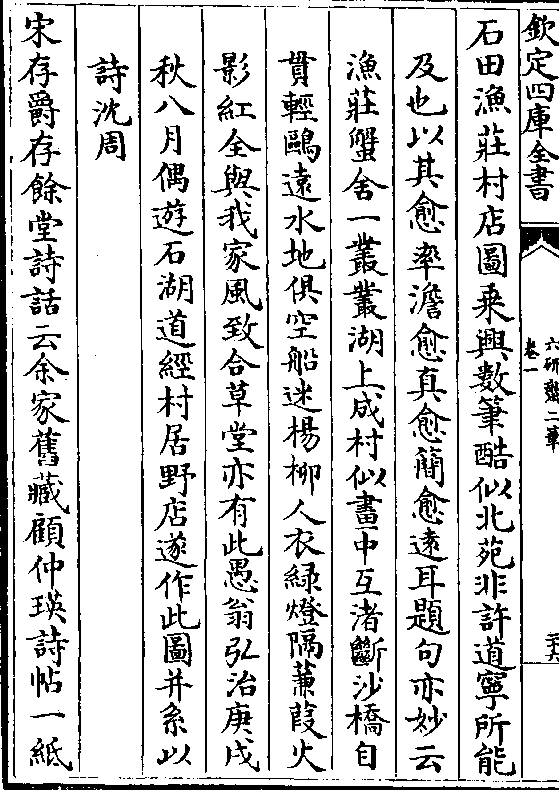 欽定四庫全書
六研齋二筆
卷一
三十六
石田漁莊村店圖乗興數筆酷似北苑非許道寧所能
及也以其愈率澹愈真愈簡愈遠耳題句亦妙云
漁莊蟹舍一叢叢湖上成村似畫中互渚斷沙橋自
貫輕鷗遠水地俱空船迷楊柳人衣緑燈隔蒹葭火
影紅全與我家風致合草堂亦有此愚翁弘治庚戌
秋八月偶遊石湖道經村居野店遂作此圖并系以
詩沈周
宋存爵存餘堂詩話云余家舊藏顧仲瑛詩帖一紙